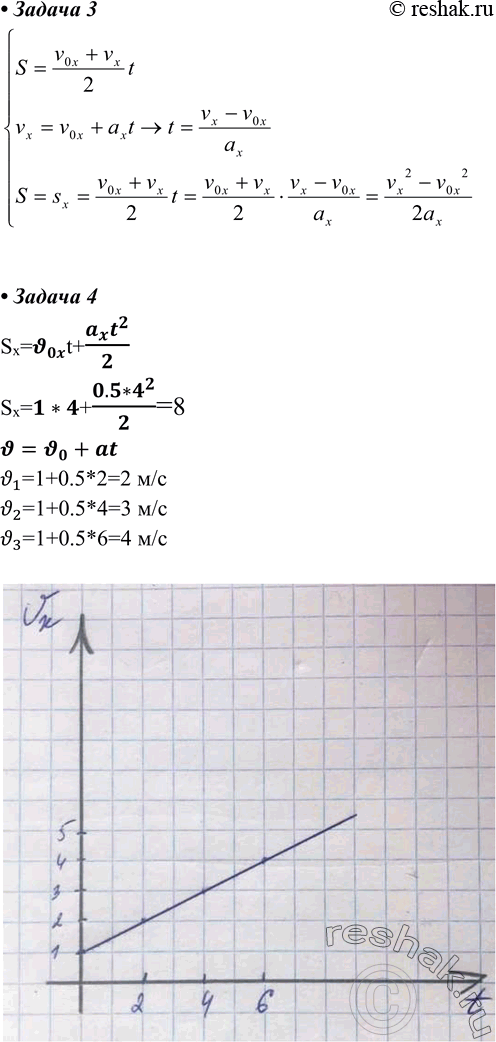 • Задача 3 © reshak.ru
S = (v₀ₓ + vₓ)/2 t
vₓ = v₀ₓ + aₓt → t = (vₓ − v₀ₓ)/aₓ
S = sₓ = (v₀ₓ + vₓ)/2 t = (v₀ₓ + vₓ)/2 · (vₓ − v₀ₓ)/aₓ = (vₓ² − v₀ₓ²)/2aₓ
• Задача 4
Sₓ=ϑ₀ₓt+aₓt²/2
Sₓ=1 * 4+0.5*4²/2=8
ϑ = ϑ₀ + at
ϑ₁=1+0.5*2=2 м/с
ϑ₂=1+0.5*4=3 м/с
ϑ₃=1+0.5*6=4 м/с
Vₓ
5
4
3
2
1
2 4 6 t
reshak.ru
©
reshak.ru